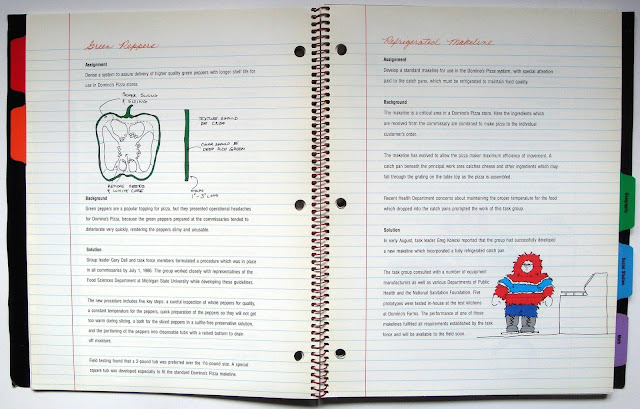 Green Peppers
Assignment
Devise a system to assure delivery of higher quality green peppers with longer shelf life for
use in Domino's Pizza stores.
PROPER SLICING
& SIZING
TEXTURE SHOULD
BE CRISP
COLOR SHOULD BE
DEEP RICH GREEN
REMOVE SEEDS
& WHITE CORE
STRIPS
1"-3" LONG
Background
Green peppers are a popular topping for pizza, but they presented operational headaches
for Domino's Pizza, because the green peppers prepared at the commissaries tended to
deteriorate very quickly, rendering the peppers slimy and unusable.
Solution
Group leader Gary Call and task force members formulated a procedure which was in place
in all commissaries by July 1, 1986. The group worked closely with representatives of the
Food Sciences Department at Michigan State University while developing these guidelines.
The new procedure includes five key steps: a careful inspection of whole peppers for quality,
a constant temperature for the peppers, quick preparation of the peppers so they will not get
too warm during slicing, a bath for the sliced peppers in a sulfite-free preservative solution,
and the portioning of the peppers into disposable tubs with a raised bottom to drain
off moisture.
Field testing found that a 3-pound tub was preferred over the pound size. A special
square tub was developed especially to fit the standard Domino's Pizza makeline.
Refrigerated Makeline
Assignment
Develop a standard makeline for use in the Domino's Pizza system, with special attention
paid to the catch pans, which must be refrigerated to maintain food quality.
Background
The makeline is a critical area in a Domino's Pizza store. Here the ingredients which
are received from the commissary are combined to make pizza to the individual
customer's order.
The makeline has evolved to allow the pizza maker maximum efficiency of movement. A
catch pan beneath the principal work area catches cheese and other ingredients which may
fall through the grating on the table top as the pizza is assembled.
Recent Health Department concerns about maintaining the proper temperature for the food
which dropped into the catch pans prompted the work of this task group.
Solution
In early August, task leader Greg reported that the group had successfully developed
a new makeline which incorporated a fully refrigerated catch pan.
The task group consulted with a number of equipment
manufacturers as well as various Departments of Public
Health and the National Sanitation Foundation. Five
prototypes were tested in-house at the test kitchens
at Domino's Farms. The performance of one of those
makelines fulfilled all requirements established by the task
force and will be available to the field soon.